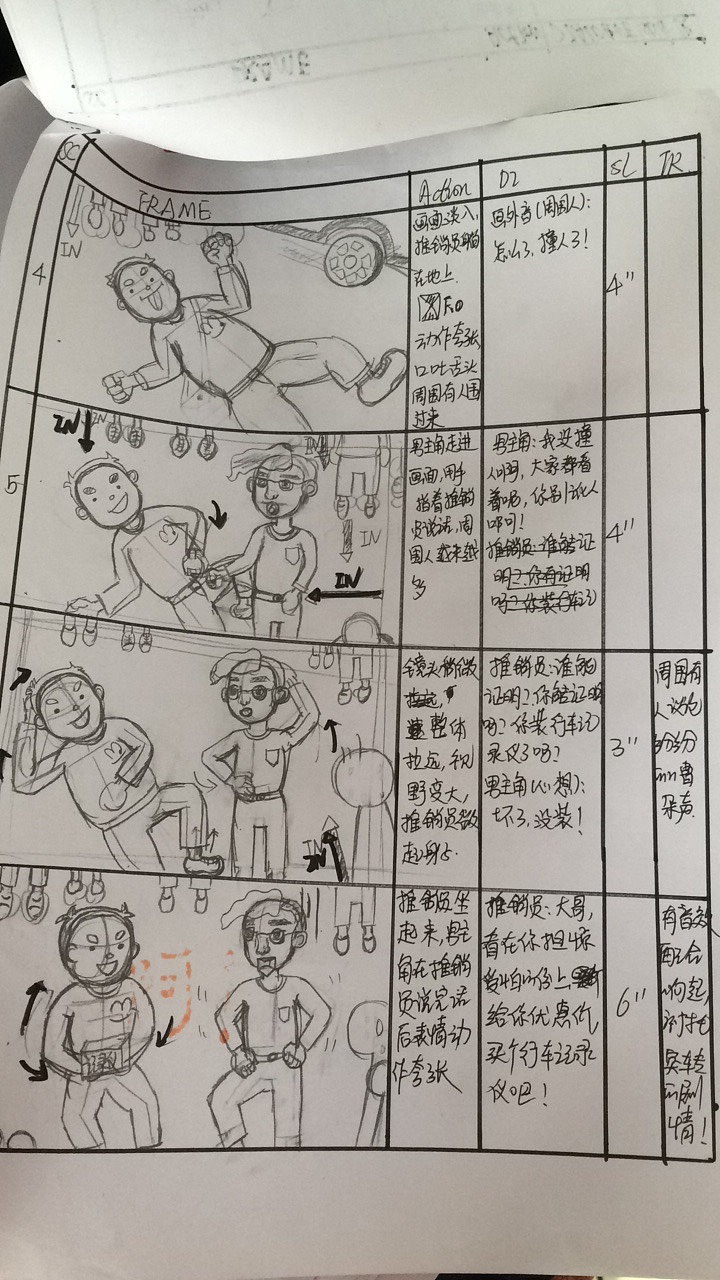 SC
FRAME
Action
DL
SL
TR
4
IN
画面淡入,
推销员躺
在地上.
动作夸张
口吐舌头
周围有人围
过来
画外音(周围人):
怎么了,撞人了!
4"
5
IN
IN
IN
IN
IN
男主角走进
画面,用手
指着推销
员说话,周
围人越来越
多
男主角:我没撞
人啊,大家都看
着呢,你别讹人
啊!
推销员:谁能证
明?你有证明
吗?你装行车记
4"
IN
镜头稍微
拉远,
整体
拉远,视
野变大,
推销员做
起身占.
推销员:谁能
证明?你能证明
吗?你装行车记
录仪了吗?
男主角(心想):
坏了,没装!
3"
周围有
人议论
纷纷
的嘈
杂声
推销员坐
起来,男主
角在推销
员说完话
后表情动
作夸张
推销员:大哥,
看在你担惊
受怕的份上
给你优惠价,
买个行车记录
仪吧!
6"
有音效
配合
响起,
衬托
反转
的剧
情!